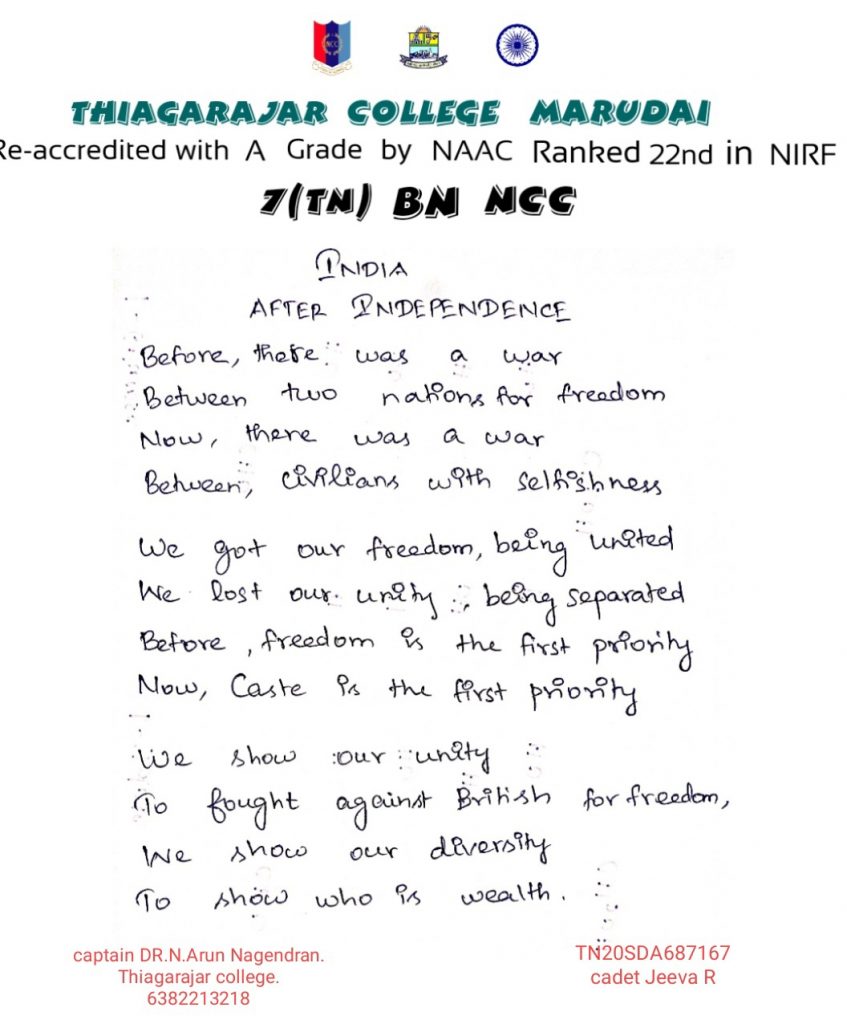 NCC
THIAGARAJAR COLLEGE MARUDAI
Re-accredited with A Grade by NAAC Ranked 22nd in NIRF
7(TN) BN NCC
INDIA
AFTER INDEPENDENCE
Before, there was a war
Between two nations for freedom
Now, there was a war
Between, civilians with selfishness
We got our freedom, being united
We lost our unity, being separated
Before, freedom is the first priority
Now, Caste is the first priority
We show our unity
To fought against British for freedom,
We show our diversity
To show who is wealth.
captain DR.N.Arun Nagendran.
Thiagarajar college.
6382213218
TN20SDA687167
cadet Jeeva R